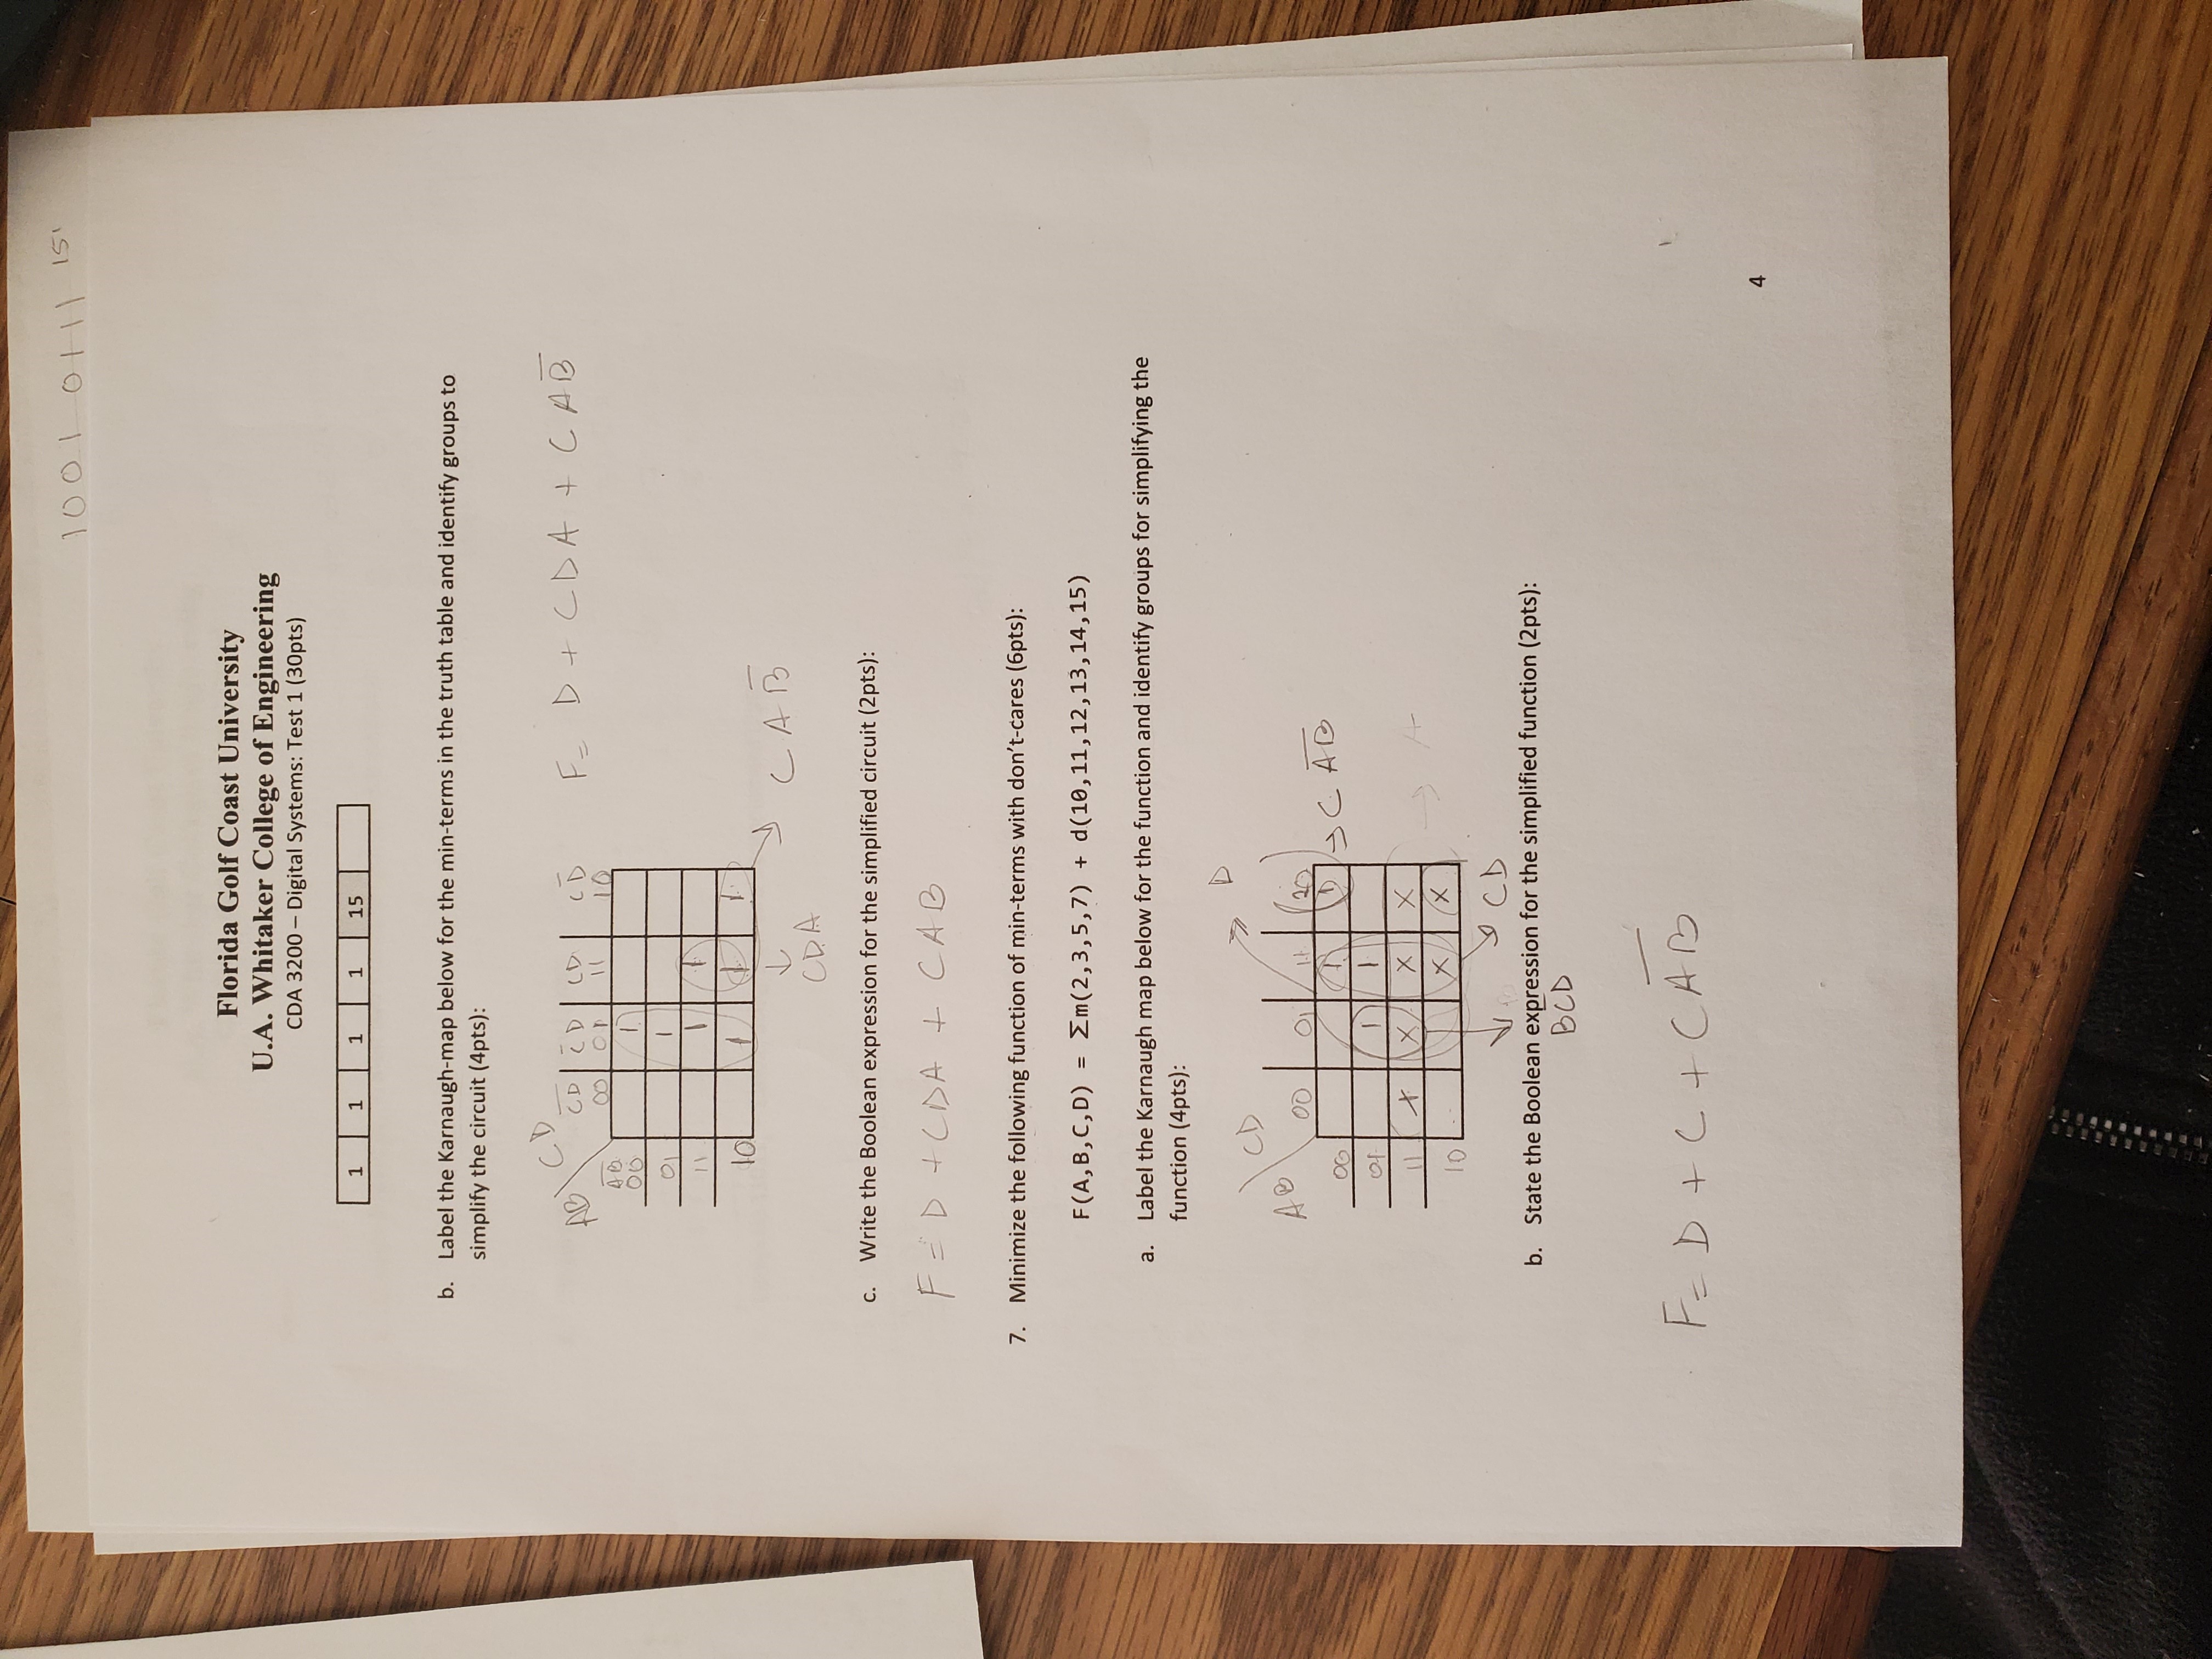 1001 0111 15
Florida Golf Coast University
U.A. Whitaker College of Engineering
CDA 3200 – Digital Systems: Test 1 (30pts)
1 1 1 1 15
b. Label the Karnaugh-map below for the min-terms in the truth table and identify groups to
simplify the circuit (4pts):
F= D + CDA + CAB̅
AB CD
C̅D̅ C̅D CD CD̅
00 01 11 10
A̅B̅
00 1
01 1
11 1 1
10 1 1 1
CDA
CAB̅
c. Write the Boolean expression for the simplified circuit (2pts):
F= D + CDA + CAB
7. Minimize the following function of min-terms with don't-cares (6pts):
F(A,B,C,D) = Σm(2,3,5,7) + d(10,11,12,13,14,15)
a. Label the Karnaugh map below for the function and identify groups for simplifying the
function (4pts):
D
AB CD
00 01 11 10
00 1 1 → CA̅B̅
01 1 1
11 X X X X → A
10 X X
CD
b. State the Boolean expression for the simplified function (2pts):
BCD
F= D + C + CA̅B̅
4